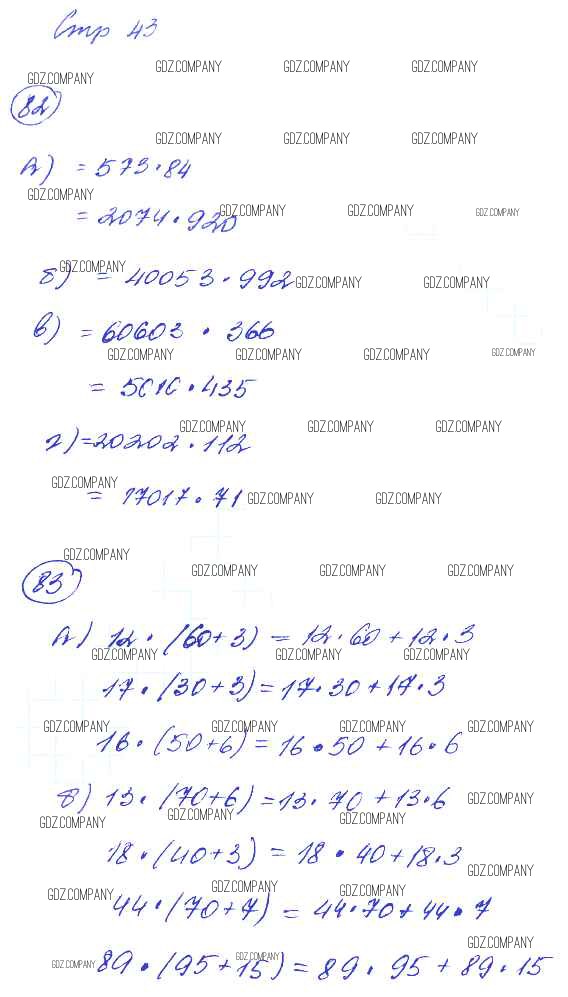 Стр 43
GDZ.COMPANY GDZ.COMPANY GDZ.COMPANY
GDZ.COMPANY
82
GDZ.COMPANY GDZ.COMPANY GDZ.COMPANY
а) = 573 · 84
GDZ.COMPANY
= 2074 · 920
GDZ.COMPANY GDZ.COMPANY GDZ.COMPANY
GDZ.COMPANY
б) = 40053 · 992
GDZ.COMPANY GDZ.COMPANY
в) = 60603 · 366
GDZ.COMPANY GDZ.COMPANY GDZ.COMPANY GDZ.COMPANY
= 5016 · 435
GDZ.COMPANY GDZ.COMPANY GDZ.COMPANY
г) = 20202 · 112
GDZ.COMPANY
= 17017 · 71
GDZ.COMPANY GDZ.COMPANY
GDZ.COMPANY
83
GDZ.COMPANY GDZ.COMPANY GDZ.COMPANY
а) 12 · (60 + 3) = 12 · 60 + 12 · 3
GDZ.COMPANY GDZ.COMPANY GDZ.COMPANY
17 · (30 + 3) = 17 · 30 + 17 · 3
GDZ.COMPANY GDZ.COMPANY GDZ.COMPANY GDZ.COMPANY
16 · (50 + 6) = 16 · 50 + 16 · 6
б) 13 · (70 + 6) = 13 · 70 + 13 · 6
GDZ.COMPANY
GDZ.COMPANY GDZ.COMPANY GDZ.COMPANY
18 · (40 + 3) = 18 · 40 + 18 · 3
GDZ.COMPANY
GDZ.COMPANY GDZ.COMPANY GDZ.COMPANY
44 · (70 + 7) = 44 · 70 + 44 · 7
GDZ.COMPANY
GDZ.COMPANY GDZ.COMPANY
89 · (95 + 15) = 89 · 95 + 89 · 15